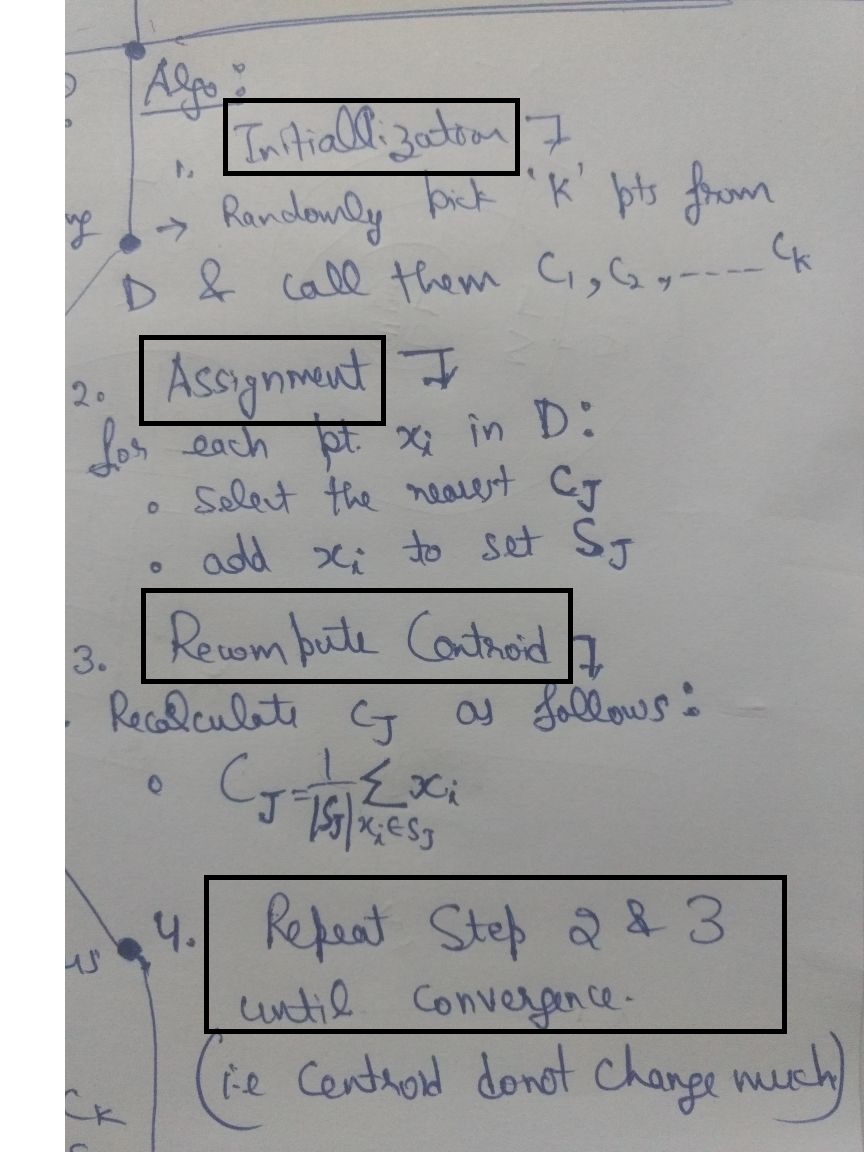 Algo:
1. Initiallization
→ Randomly pick 'K' pts from
D & call them C₁, C₂, ---- Cₖ
2. Assignment
for each pt. xᵢ in D:
• Select the nearest C_J
• add xᵢ to set S_J
3. Recompute Centroid
Recalculate C_J as follows:
• C_J = 1/|S_J| Σ xᵢ
xᵢ∈S_J
4. Repeat Step 2 & 3
until convergence.
(i.e Centroid donot change much)
Cₖ